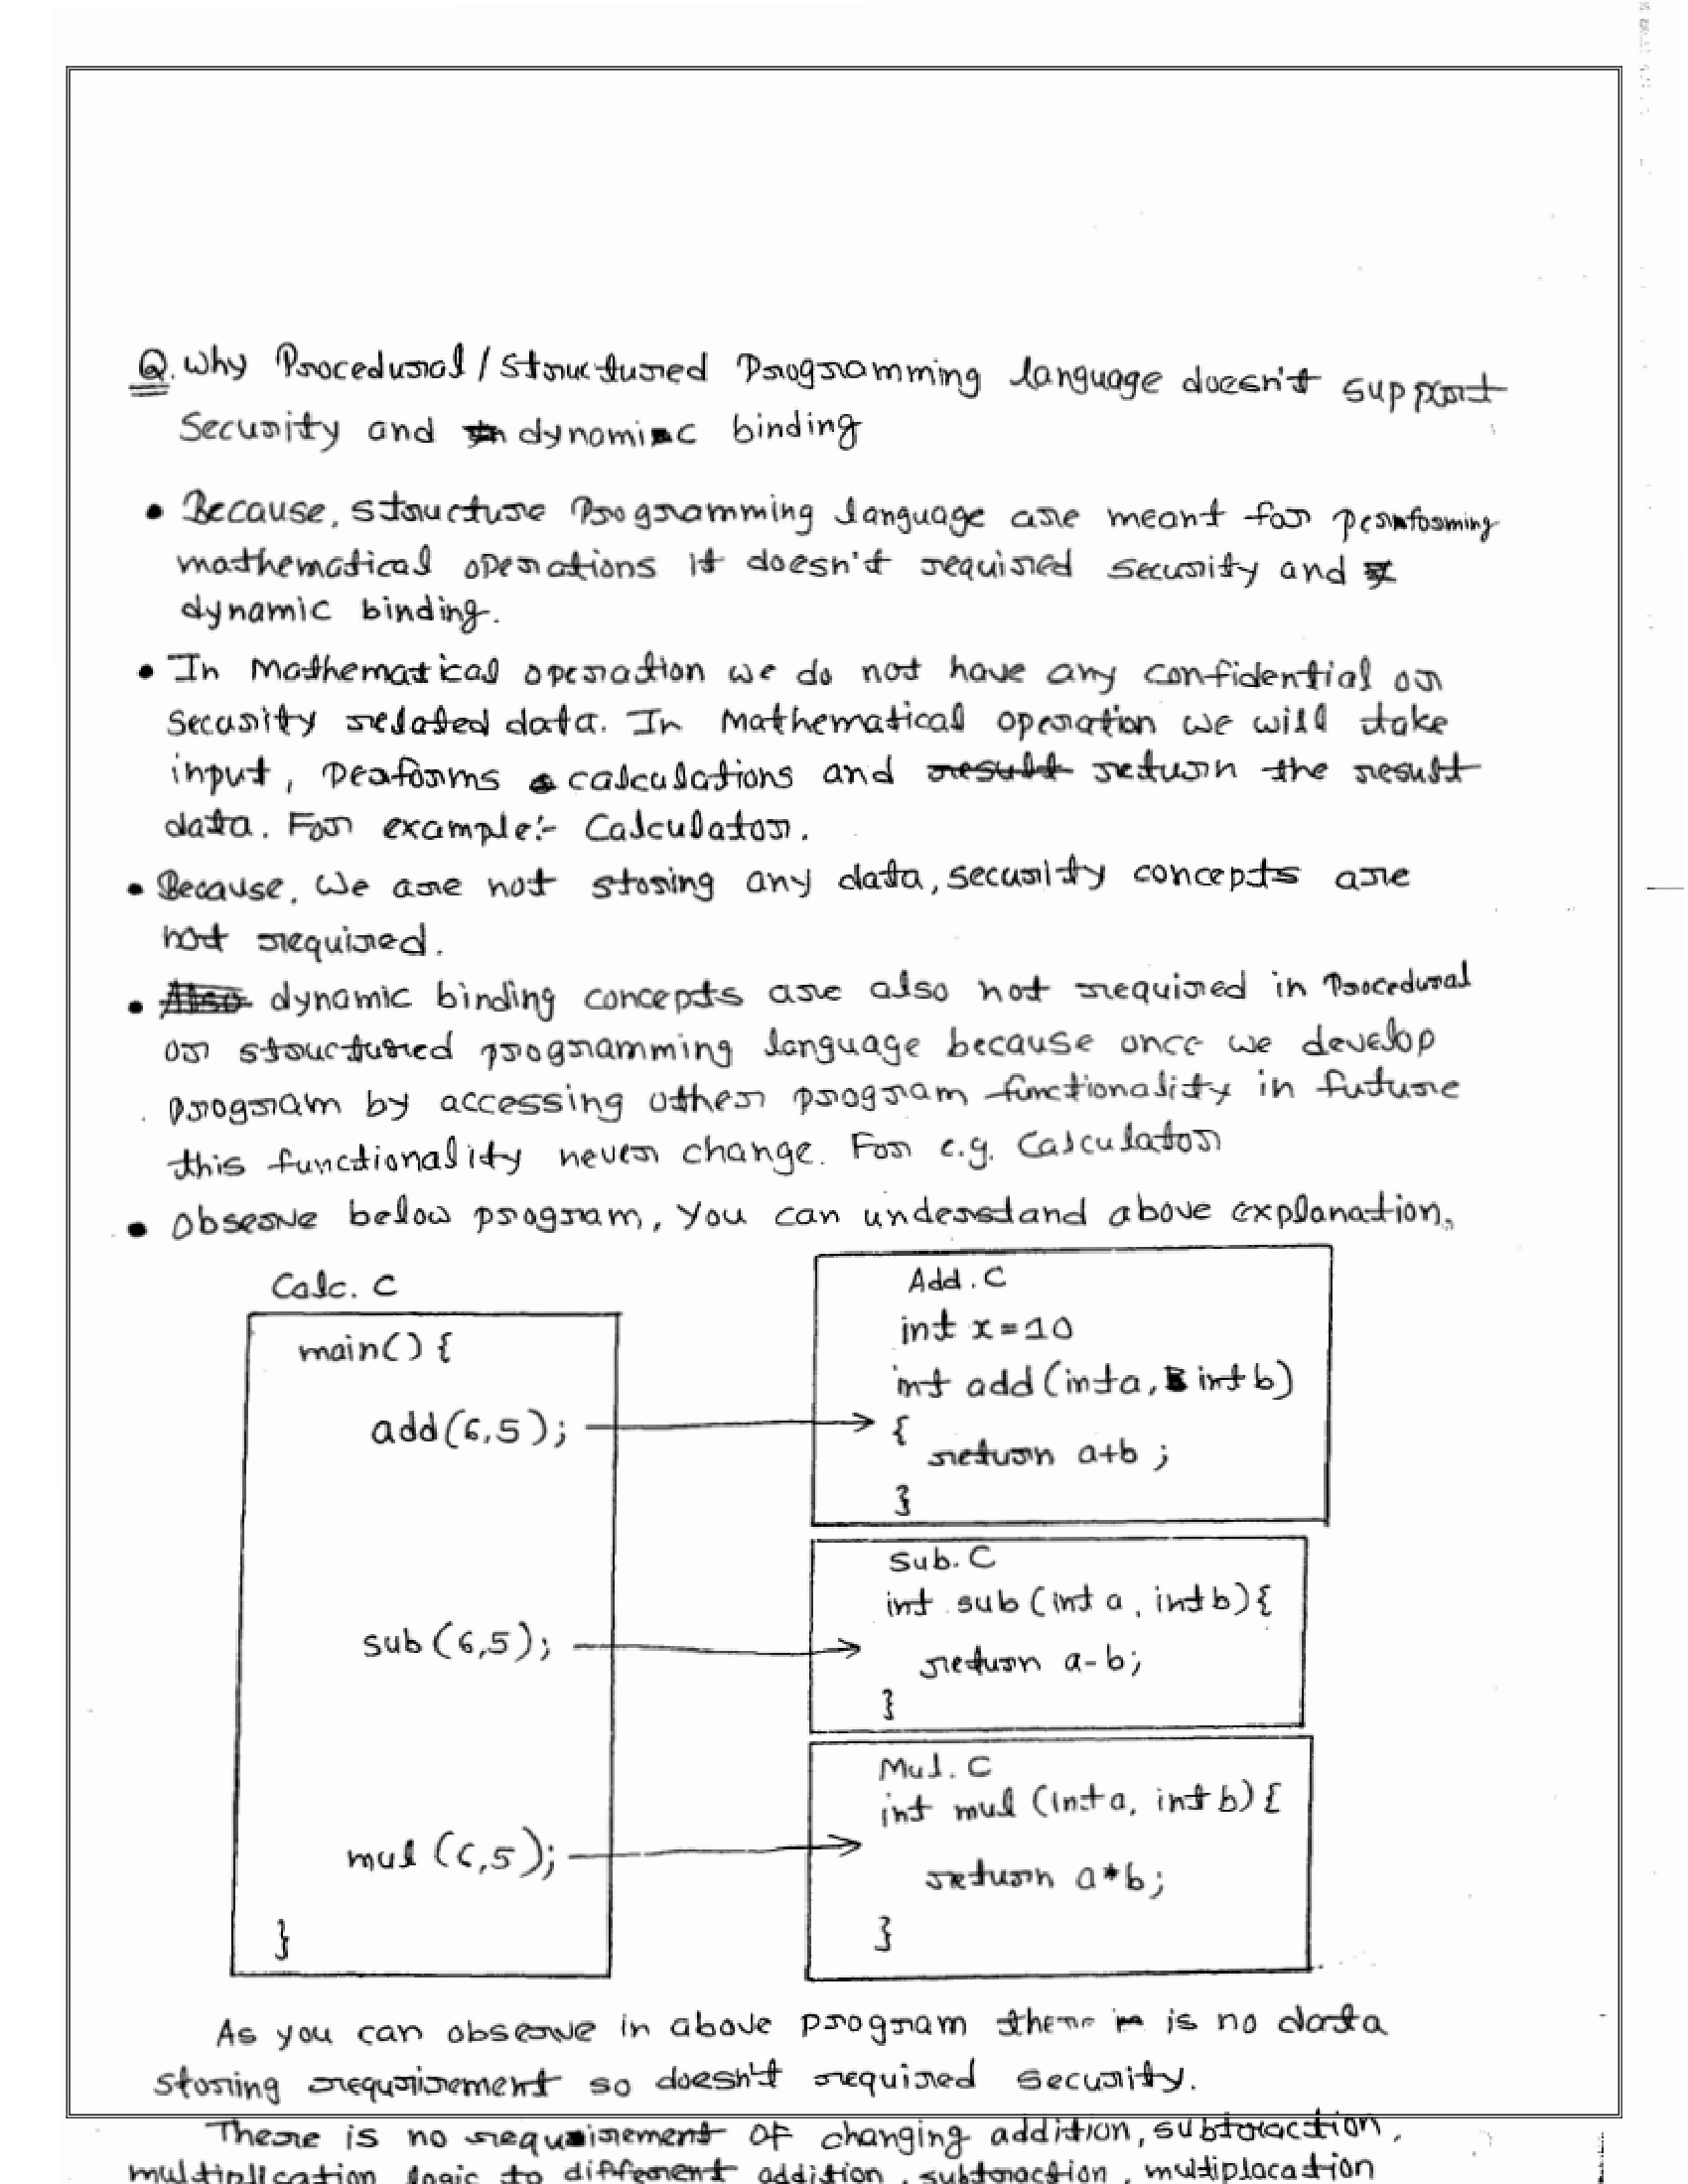 Q. Why Procedural / Structured Programming language doesn't support
Security and dynamic binding
• Because, structure Programming language are meant for performing
mathematical operations it doesn't required security and
dynamic binding.
• In Mathematical operation we do not have any confidential or
Security related data. In Mathematical operation we will take
input, performs calculations and return the result
data. For example:- Calculator.
• Because, We are not storing any data, security concepts are
not required.
• dynamic binding concepts are also not required in Procedural
or structured programming language because once we develop
program by accessing other program functionality in future
this functionality never change. For e.g. Calculator
• Observe below program, You can understand above explanation.
Calc. C
main() {
add(6,5);
sub(6,5);
mul(6,5);
}
Add. C
int x=10
int add(int a, int b)
{
return a+b ;
}
Sub. C
int sub (int a, int b) {
return a-b;
}
Mul. C
int mul (int a, int b) {
return a*b;
}
As you can observe in above program there is no data
storing requirement so doesn't required security.
There is no requirement of changing addition, subtraction,
multiplication logic to different addition, subtraction, multiplacation